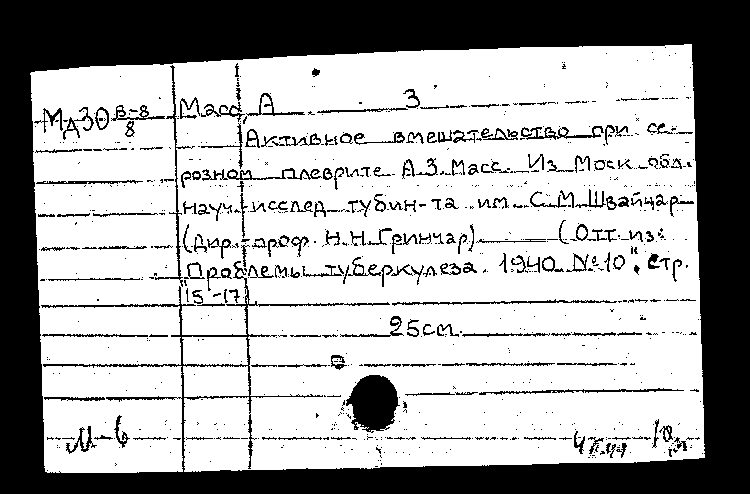 МдЗО В-8/8 Масс, А З
Активное вмешательство при се-
розном плеврите А.З. Масс. Из Моск обл.
науч.-исслед тубин-та им. С.М. Швайцар
(Дир.-проф. Н.Н. Гринчар). (Отт. из:
"Проблемы туберкулеза. 1940 № 10", стр.
15-17).
25см.
М-6